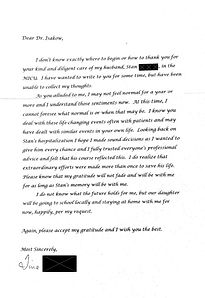 Dear Dr. Isakow,
I don't know exactly where to begin or how to thank you for
your kind and diligent care of my husband, Stan , in the
NICU. I have wanted to write to you for some time, but have been
unable to collect my thoughts.
As you alluded to me, I may not feel normal for a year or
more and I understand those sentiments now. At this time, I
cannot foresee what normal is or when that may be. I know you
deal with these life changing events often with patients and may
have dealt with similar events in your own life. Looking back on
Stan's hospitalization I hope I made sound decisions as I wanted to
give him every chance and I fully trusted everyone's professional
advice and felt that his course reflected this. I do realize that
extraordinary efforts were made more than once to save his life.
Please know that my gratitude will not fade and will be with me
for as long as Stan's memory will be with me.
I do not know what the future holds for me, but our daughter
will be going to school locally and staying at home with me for
now, happily, per my request.
Again, please accept my gratitude and I wish you the best.
Most Sincerely,